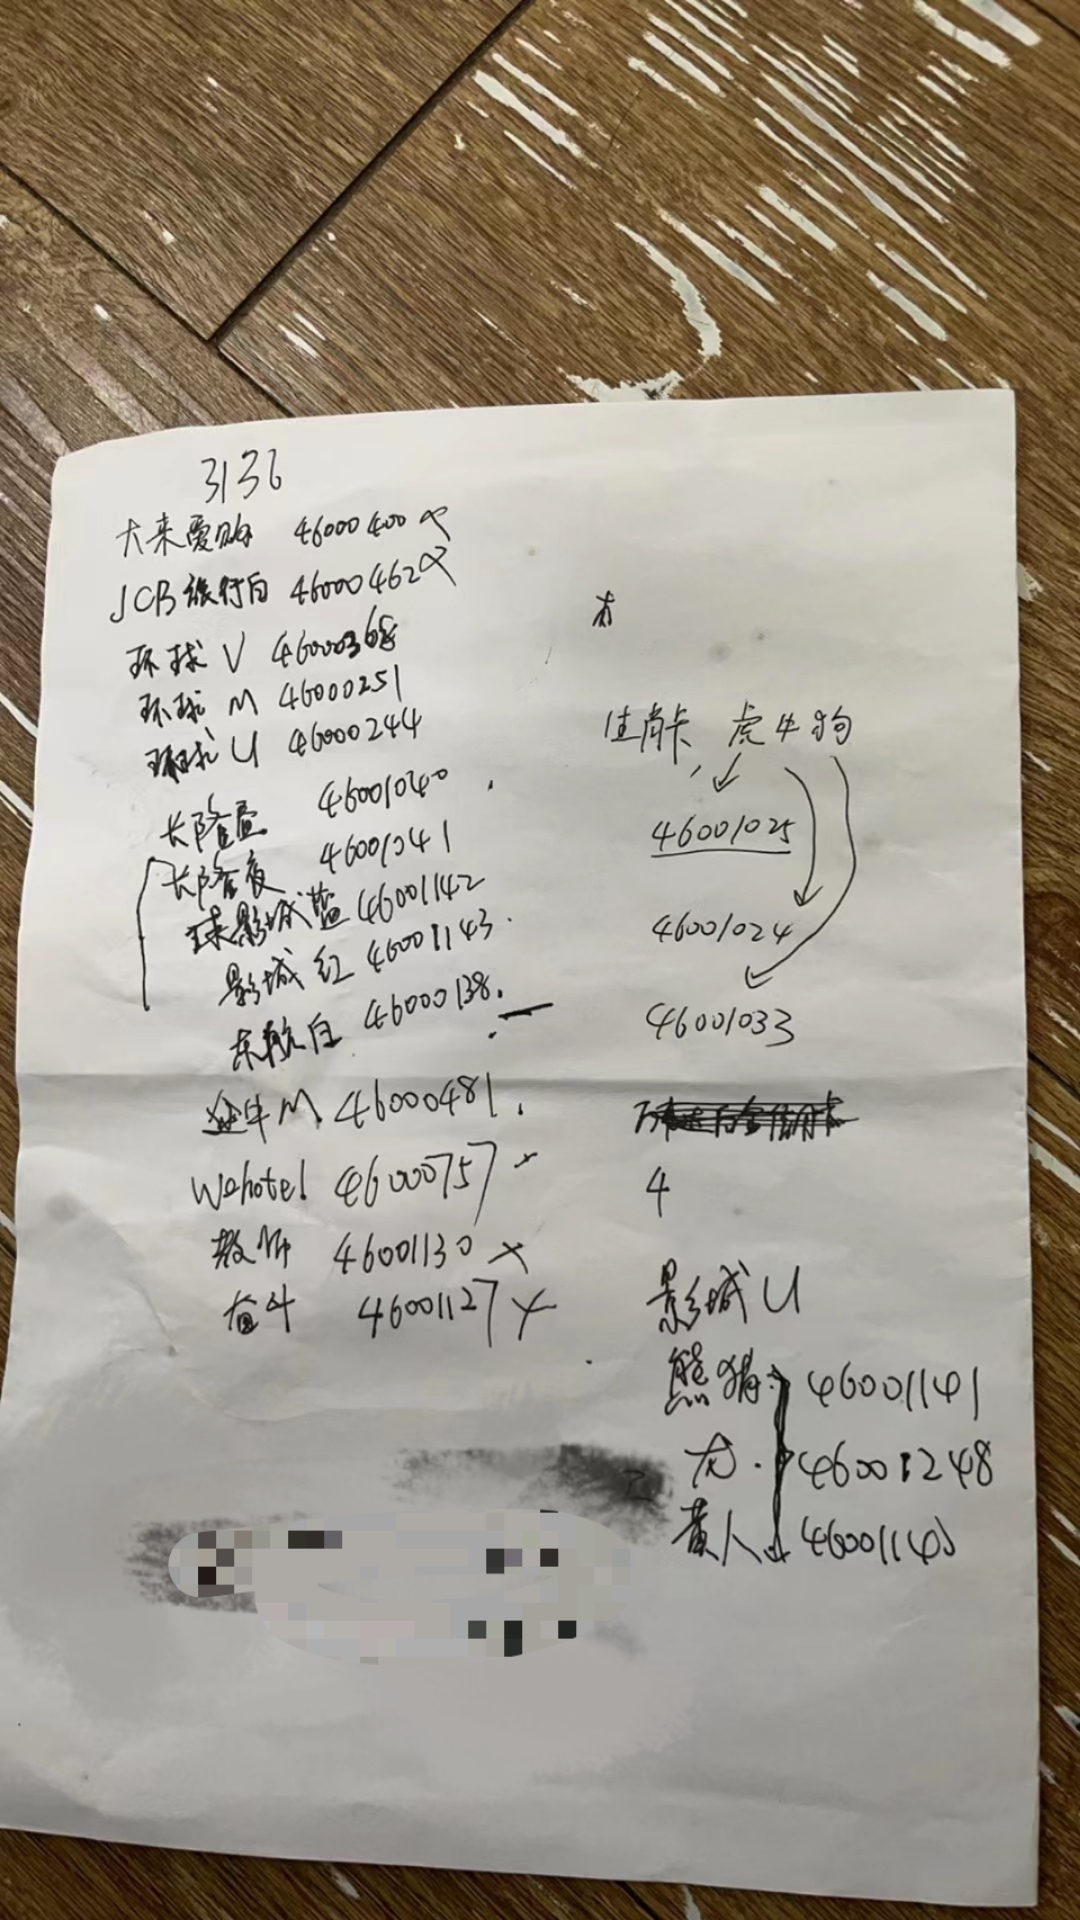 3136
大来爱购 46000400 ×
JCB旅行白 46000462 ×
环球 V 46000368
环球 M 46000251
环球 U 46000244
长隆昼 46001040
长隆夜 46001041
球影城蓝 46001142
影城红 46001143
东航白 46000138
牛M 46000481
Wehotel 46000757
教师 46001130 ×
奋斗 46001127 ×
生肖卡, 虎牛狗
46001025
46001024
46001033
4
影城U
熊猫 46001141
龙 46001248
黄人 46001140